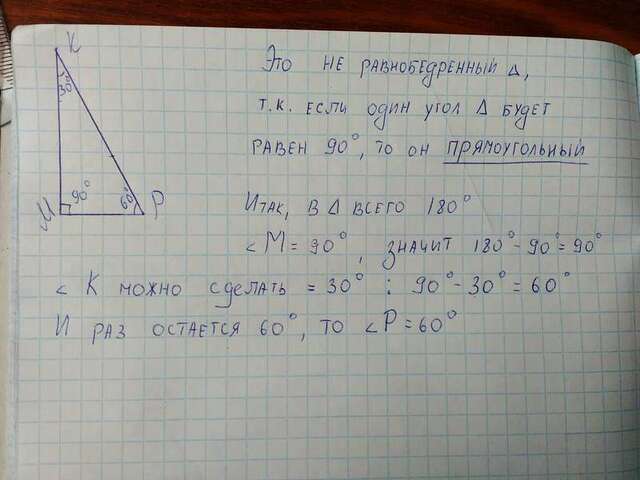 K
30°
90°
60°
M
P
Это не равнобедренный Δ,
т.к. если один угол Δ будет
равен 90°, то он прямоугольный
Итак, в Δ всего 180°
∠M = 90°, значит 180° - 90° = 90°
∠ K можно сделать = 30° : 90° - 30° = 60°
И раз остается 60°, то ∠P = 60°